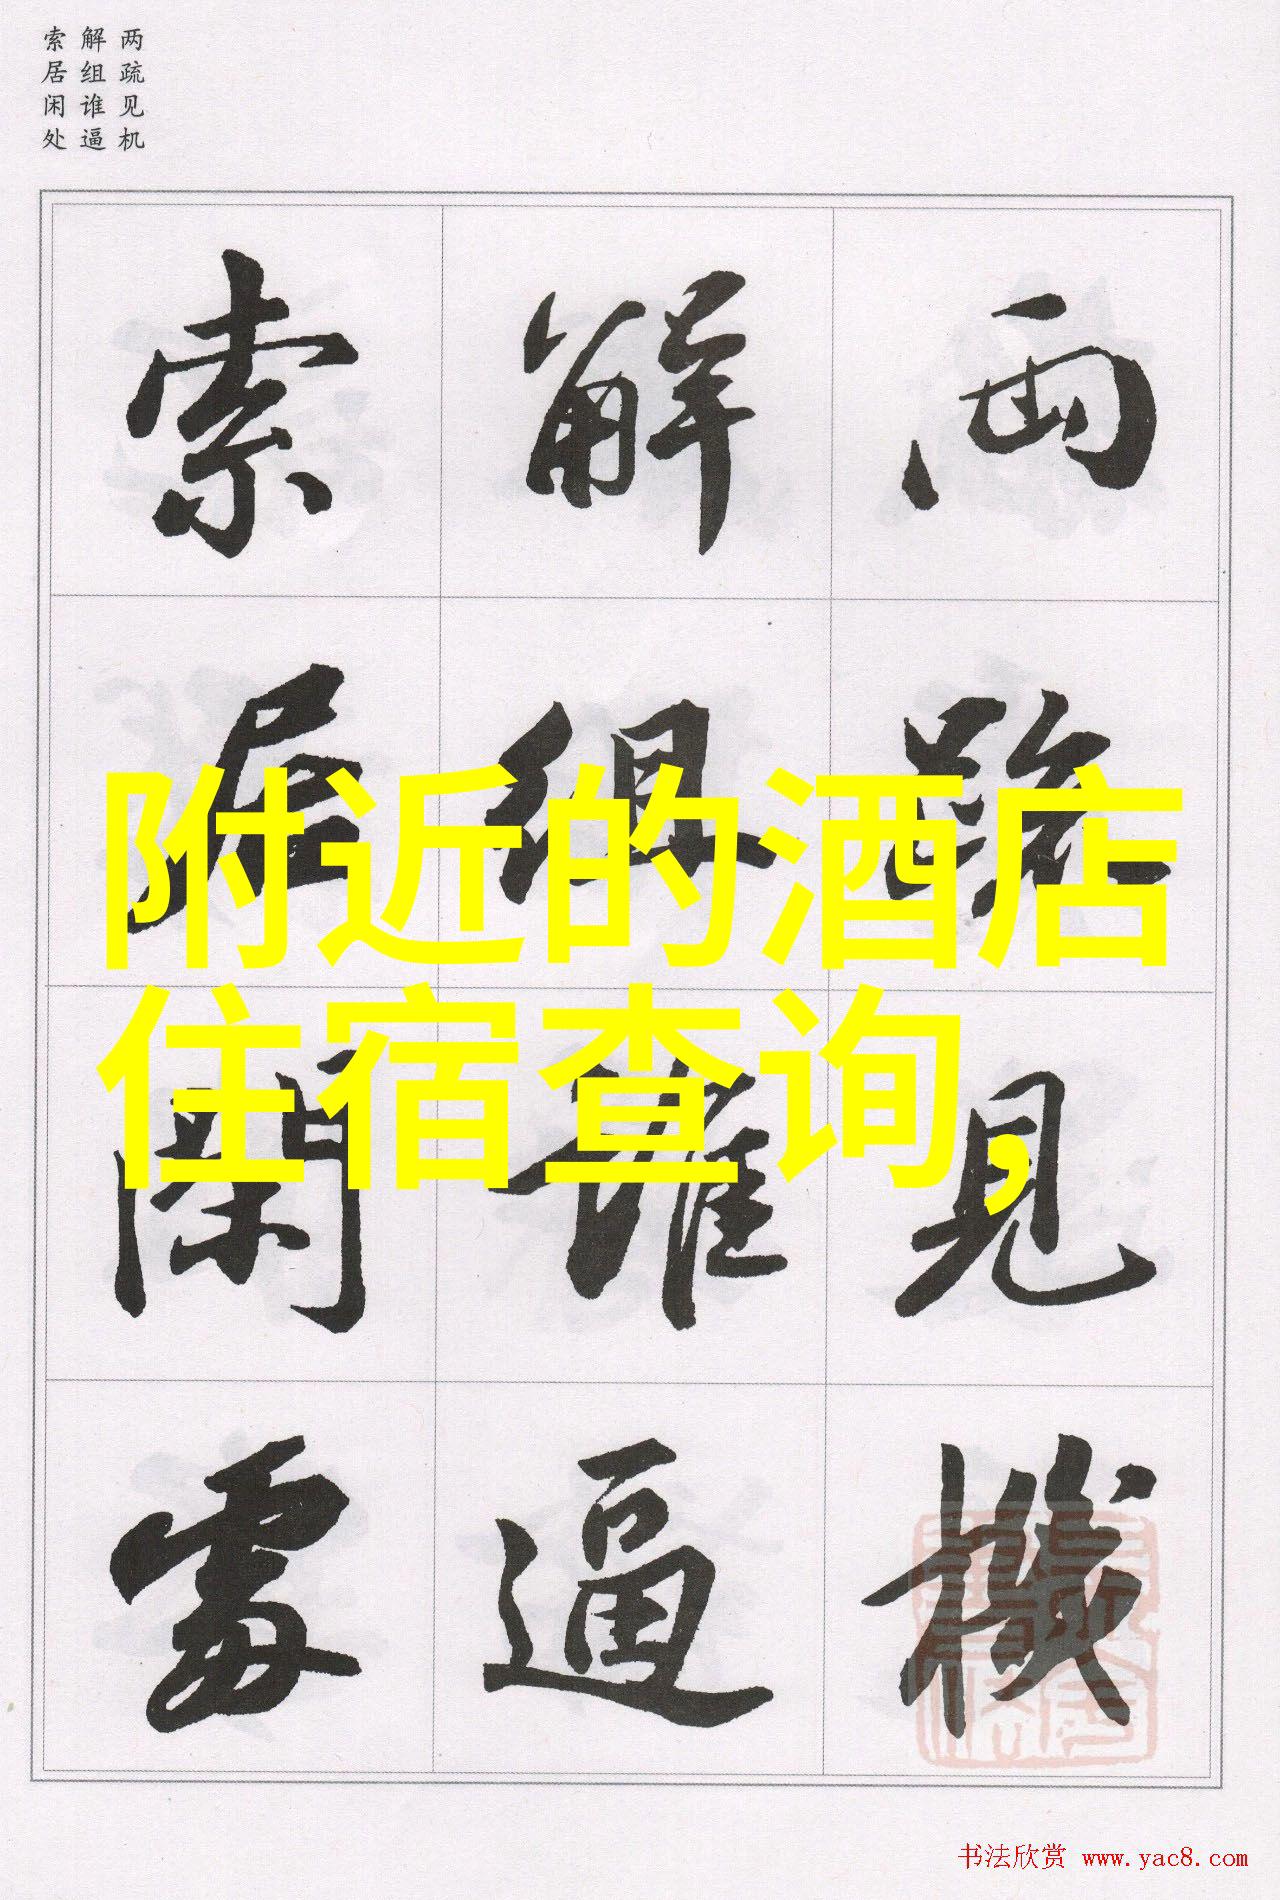 两疏见机
解组谁逼
索居闲处
两疏見機
解組誰逼
索居閑處
附近的酒店
住宿查询，
书法欣赏 www.yac8.com